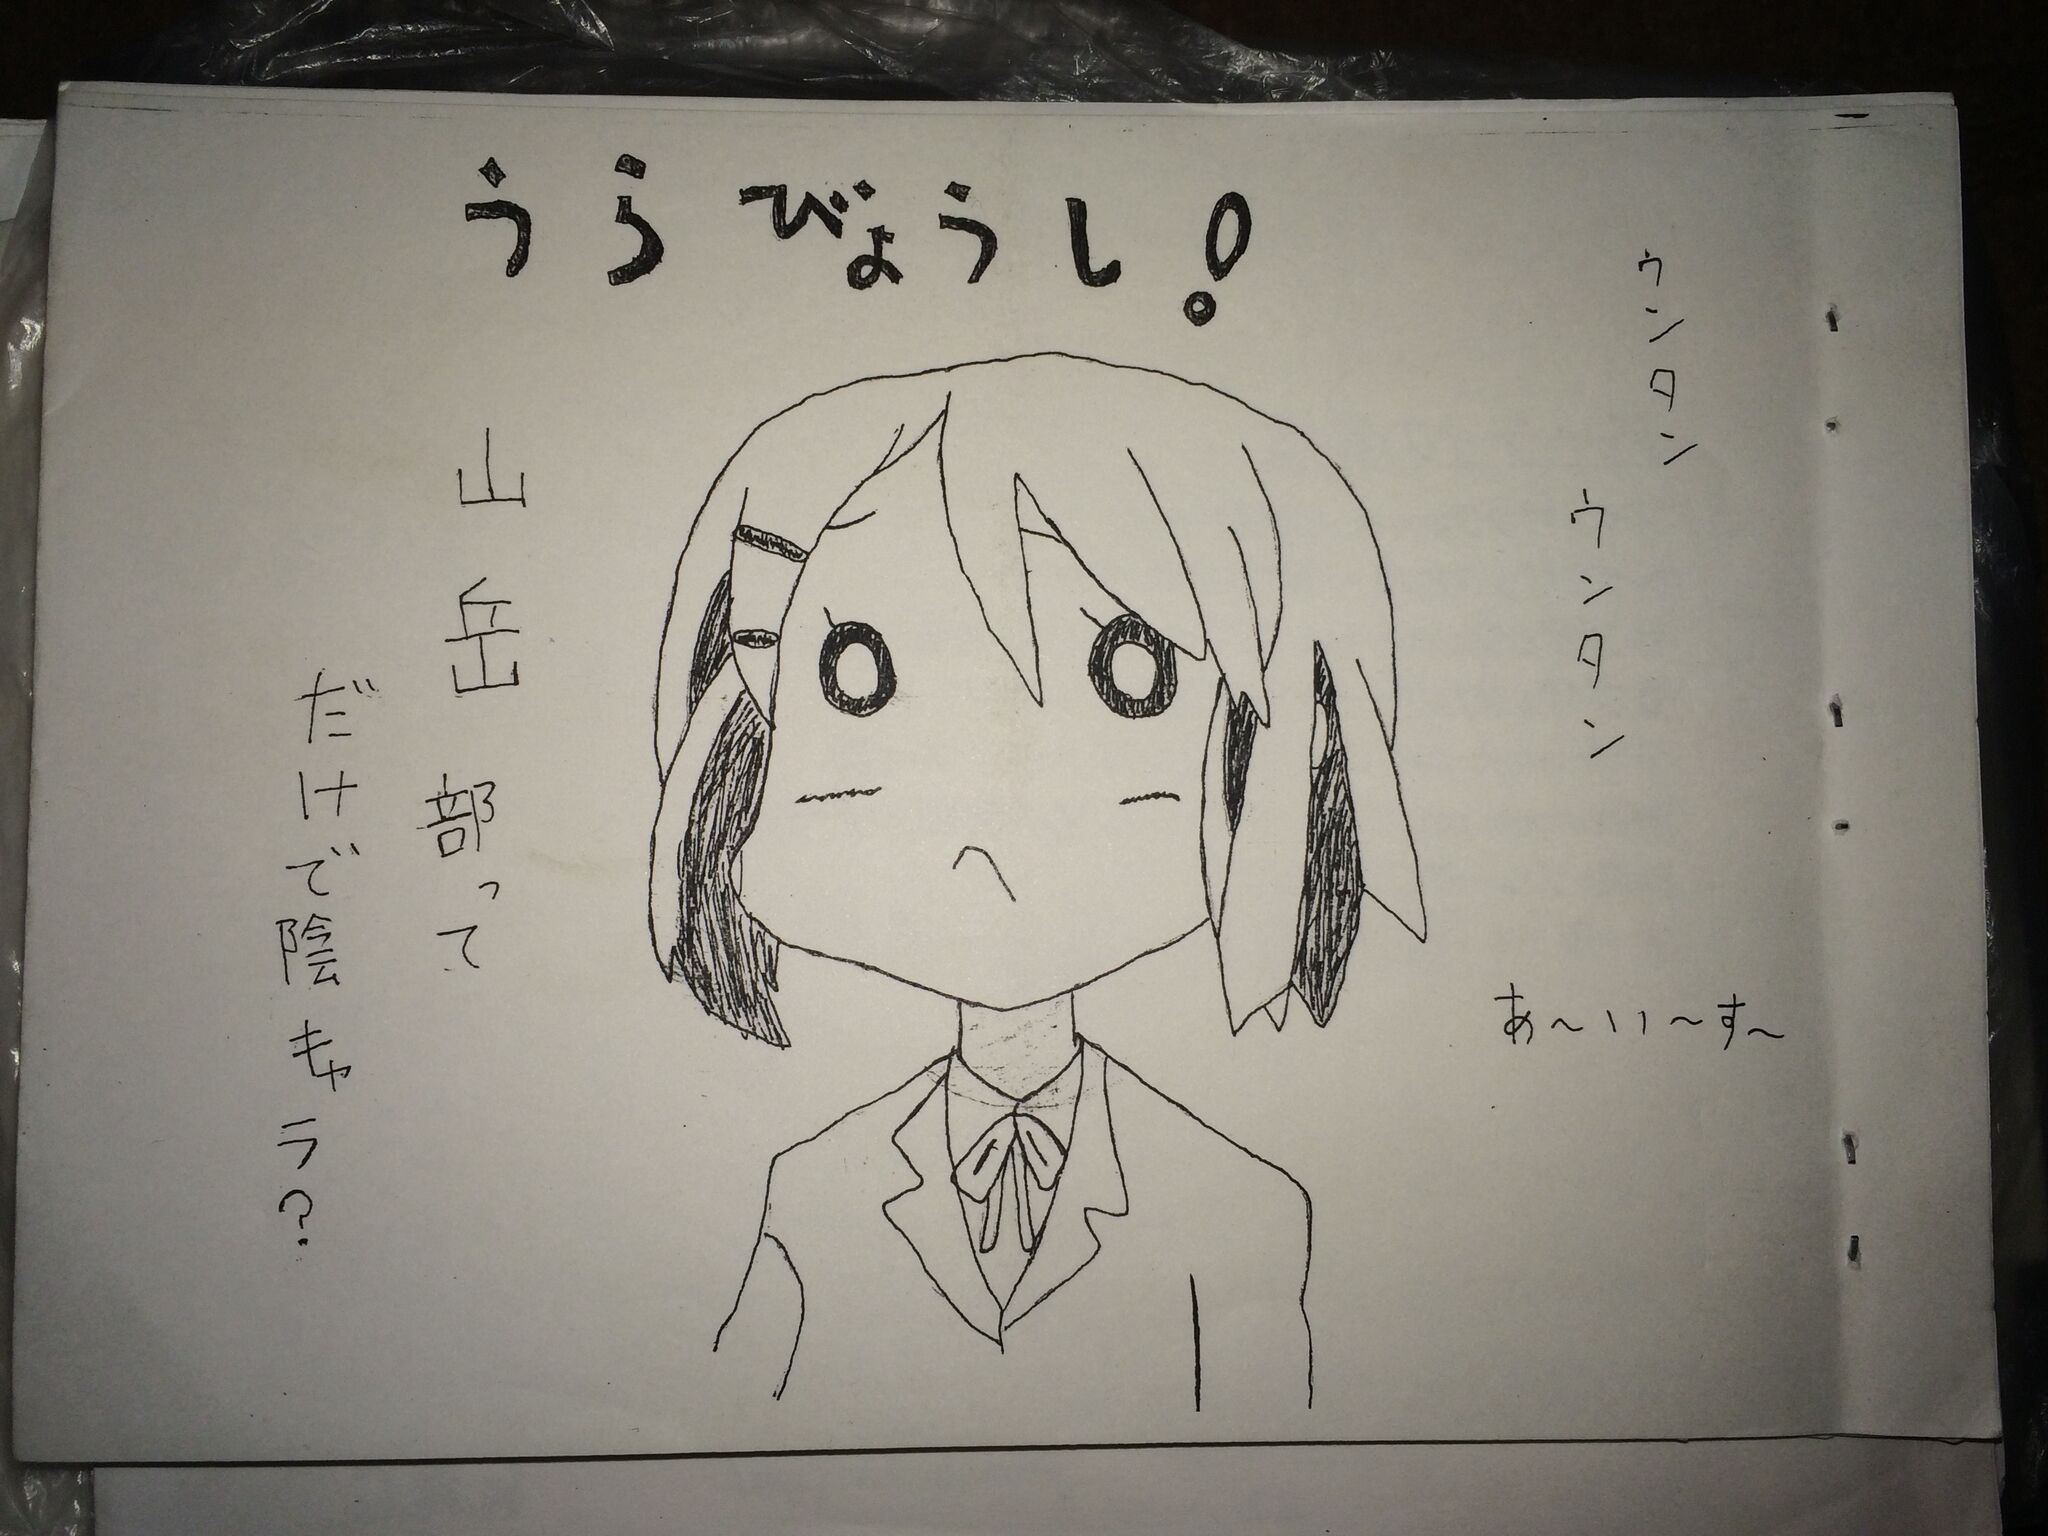 うらびょうし!
ウンタン
ウンタン
あ〜いい〜す〜
山岳部って
だけで陰キャラ?